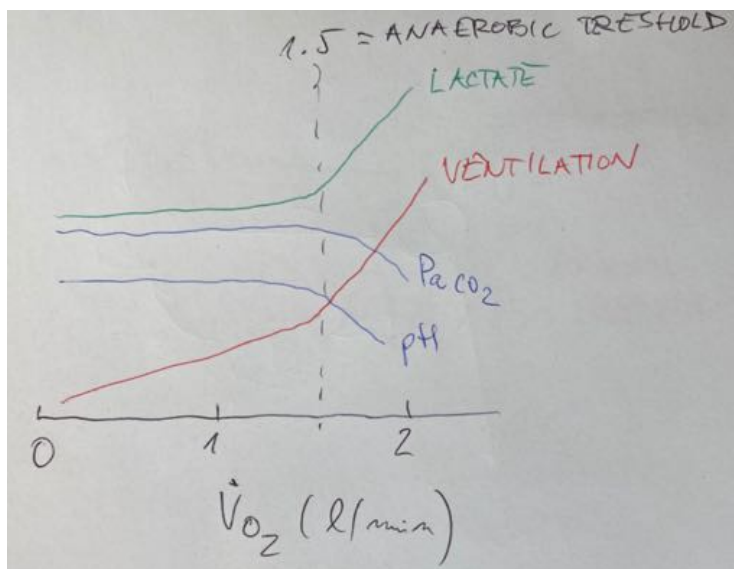 1.5 = ANAEROBIC TRESHOLD
LACTATE
VENTILATION
PaCO₂
pH
0 1 2
V̇O₂ (l/min)